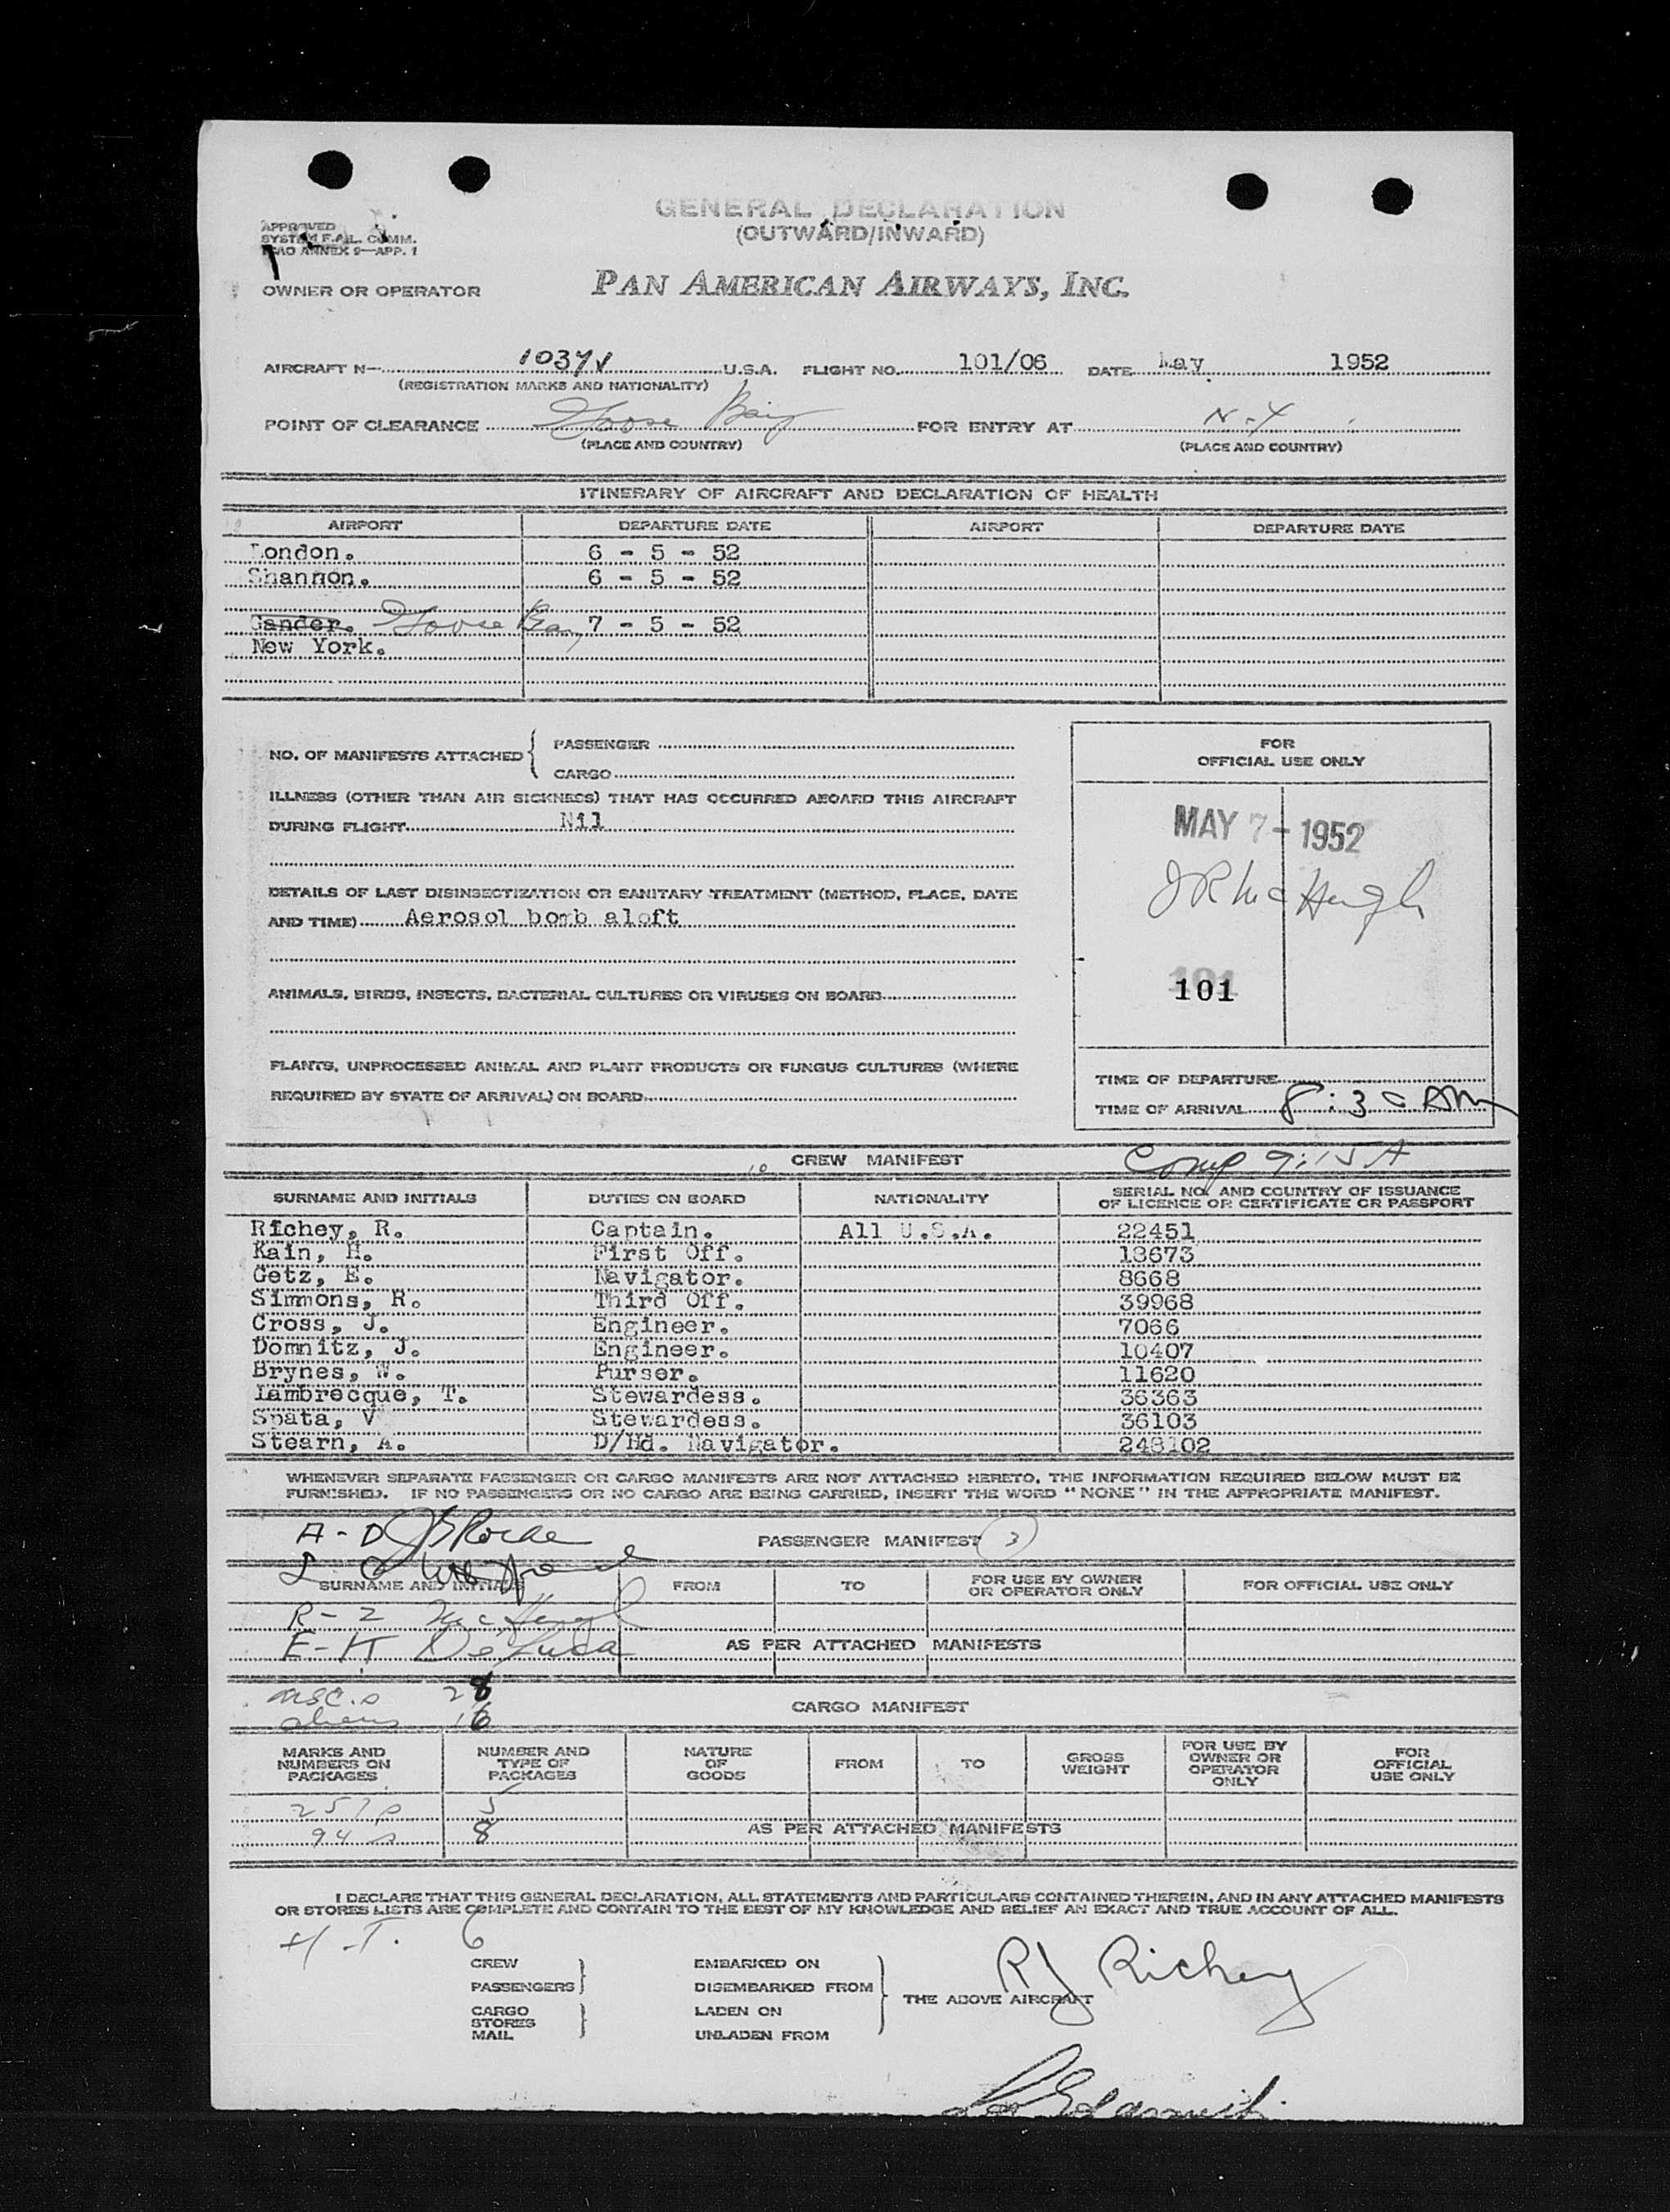 GENERAL DECLARATION
(OUTWARD/INWARD)
APPROVED
SYSTEM FAL. COMM.
ICAO ANNEX 9—APP. 1
OWNER OR OPERATOR PAN AMERICAN AIRWAYS, INC.
AIRCRAFT N— 1037V U.S.A. FLIGHT NO. 101/06 DATE May 1952
(REGISTRATION MARKS AND NATIONALITY)
POINT OF CLEARANCE Goose Bay FOR ENTRY AT N-Y
(PLACE AND COUNTRY) (PLACE AND COUNTRY)
ITINERARY OF AIRCRAFT AND DECLARATION OF HEALTH
AIRPORT DEPARTURE DATE AIRPORT DEPARTURE DATE
London. 6 - 5 - 52
Shannon. 6 - 5 - 52
Gander. Goose Bay 7 - 5 - 52
New York.
NO. OF MANIFESTS ATTACHED { PASSENGER
CARGO
ILLNESS (OTHER THAN AIR SICKNESS) THAT HAS OCCURRED ABOARD THIS AIRCRAFT
DURING FLIGHT Nil
DETAILS OF LAST DISINSECTIZATION OR SANITARY TREATMENT (METHOD, PLACE, DATE
AND TIME) Aerosol bomb aloft
ANIMALS, BIRDS, INSECTS, BACTERIAL CULTURES OR VIRUSES ON BOARD
PLANTS, UNPROCESSED ANIMAL AND PLANT PRODUCTS OR FUNGUS CULTURES (WHERE
REQUIRED BY STATE OF ARRIVAL) ON BOARD
FOR
OFFICIAL USE ONLY
MAY 7- 1952
J R McHugh
101
TIME OF DEPARTURE
TIME OF ARRIVAL 8:30 AM
10 CREW MANIFEST Comp 9:15 A
SURNAME AND INITIALS DUTIES ON BOARD NATIONALITY SERIAL NO. AND COUNTRY OF ISSUANCE
OF LICENCE OR CERTIFICATE OR PASSPORT
Richey, R. Captain. All U.S.A. 22451
Kain, H. First Off. 18673
Getz, E. Navigator. 8668
Simmons, R. Third Off. 39968
Cross, J. Engineer. 7066
Domnitz, J. Engineer. 10407
Brynes, W. Purser. 11620
Lambrecque, T. Stewardess. 36363
Spata, V Stewardess. 36103
Stearn, A. D/Hd. Navigator. 248102
WHENEVER SEPARATE PASSENGER OR CARGO MANIFESTS ARE NOT ATTACHED HERETO, THE INFORMATION REQUIRED BELOW MUST BE
FURNISHED. IF NO PASSENGERS OR NO CARGO ARE BEING CARRIED, INSERT THE WORD "NONE" IN THE APPROPRIATE MANIFEST.
A - D
PASSENGER MANIFEST 3
SURNAME AND INITIALS FROM TO FOR USE BY OWNER
OR OPERATOR ONLY FOR OFFICIAL USE ONLY
R - Z McHugh
E - K DeLuca AS PER ATTACHED MANIFESTS
USC.s 28
aliens 16
CARGO MANIFEST
MARKS AND
NUMBERS ON
PACKAGES NUMBER AND
TYPE OF
PACKAGES NATURE
OF
GOODS FROM TO GROSS
WEIGHT FOR USE BY
OWNER OR
OPERATOR
ONLY FOR
OFFICIAL
USE ONLY
257s 5
94s 8 AS PER ATTACHED MANIFESTS
I DECLARE THAT THIS GENERAL DECLARATION, ALL STATEMENTS AND PARTICULARS CONTAINED THEREIN, AND IN ANY ATTACHED MANIFESTS
OR STORES LISTS ARE COMPLETE AND CONTAIN TO THE BEST OF MY KNOWLEDGE AND BELIEF AN EXACT AND TRUE ACCOUNT OF ALL.
H.T. 6
CREW EMBARKED ON
PASSENGERS DISEMBARKED FROM
THE ABOVE AIRCRAFT
RJ Richey
CARGO LADEN ON
STORES
MAIL UNLADEN FROM